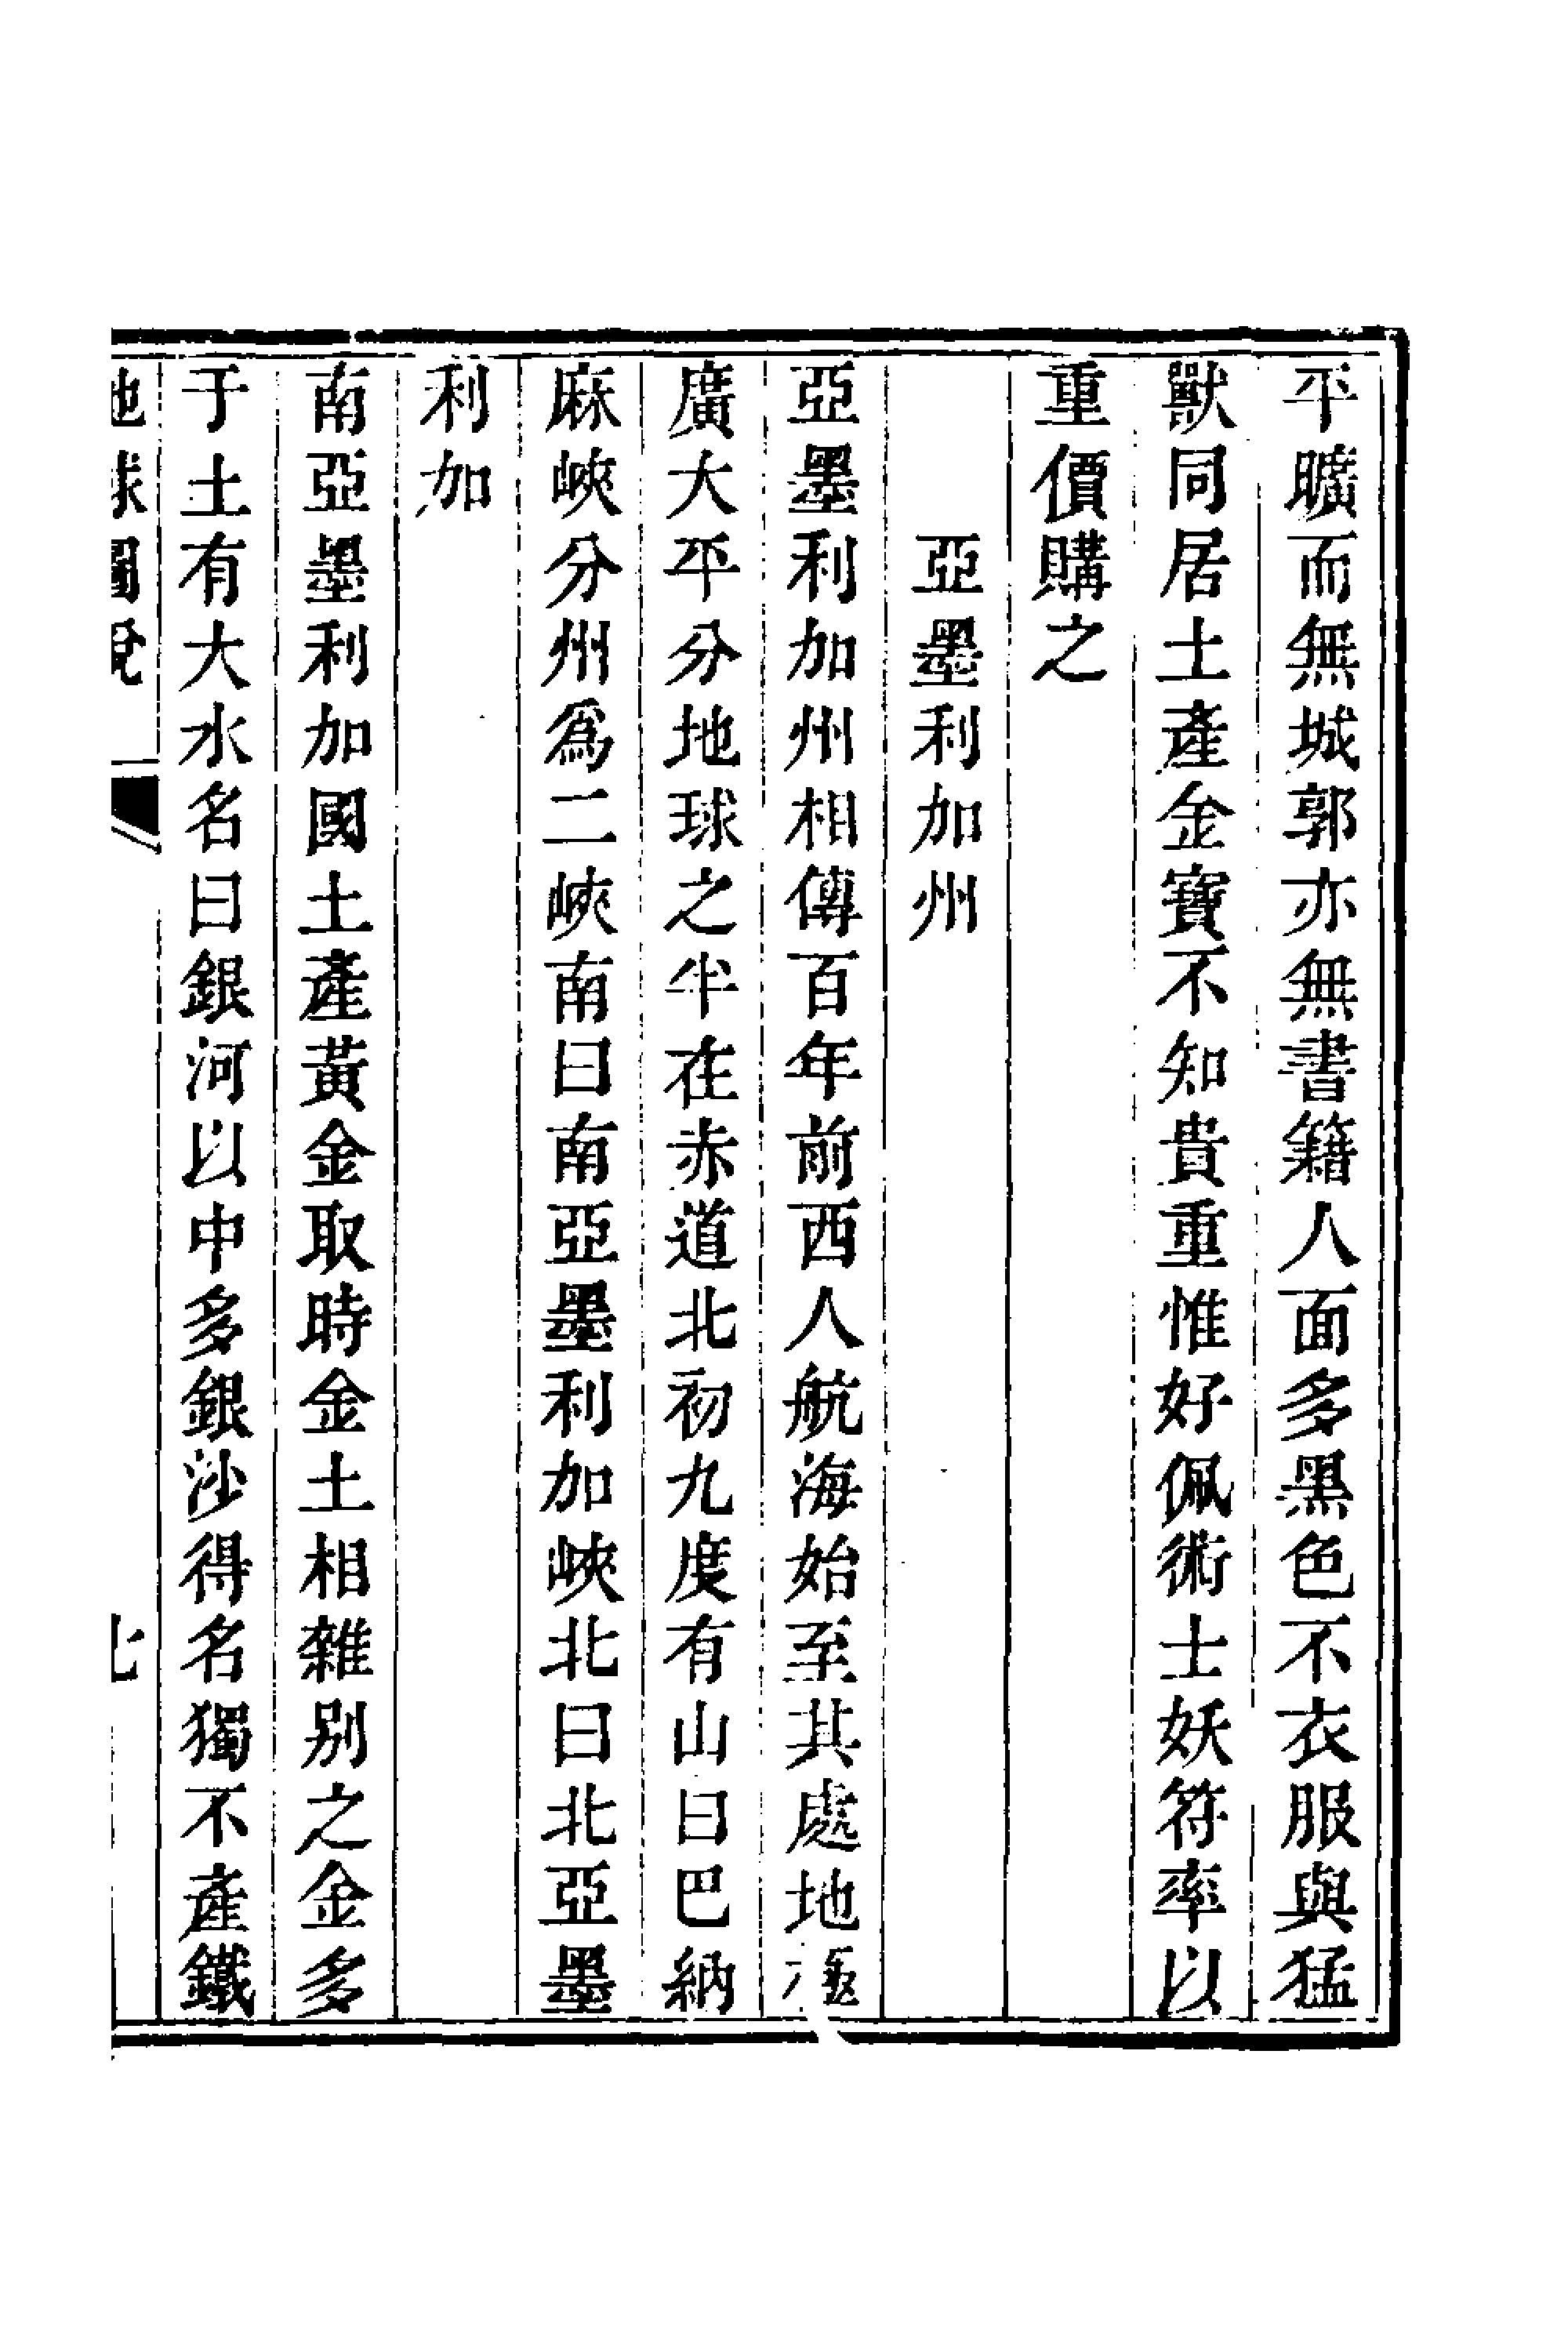 平曠而無城郭亦無書籍人面多黑色不衣服與猛
獸同居土產金寶不知貴重惟好佩術士妖符率以
重價購之
亞墨利加州
亞墨利加州相傳百年前西人航海始至其處地極
廣大平分地球之半在赤道北初九度有山曰巴納
麻峽分州爲二峽南曰南亞墨利加峽北曰北亞墨
利加
南亞墨利加國土產黃金取時金土相雜别之金多
于土有大水名曰銀河以中多銀沙得名獨不產鐵
地球圖說